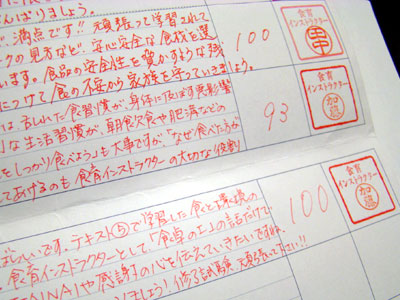 んばりましょう。
満点です!! 頑張って学習されて
ークの見方など、安心安全な食材を選
います。食品の安全性を脅かすような残
につけて食の不安から家族を守っていきましょう。
100
食育
インストラクター
田中
は乱れた食習慣が身体に及ぼす悪影響
な生活習慣が、朝食欠食や肥満などの
をしっかり食べよう」も大事ですが「なぜ食べた方が
してあげるのも食育インストラクターの大切な役割
93
食育
インストラクター
加藤
ばらしいです。テキスト⑤で学習した食と環境の
。食育インストラクターとして「食卓の上」の話だけで
TAINAI」や感謝の心を伝えていきたいですね。
しょう!修了試験、頑張って下さい!!
100
食育
インストラクター
加藤